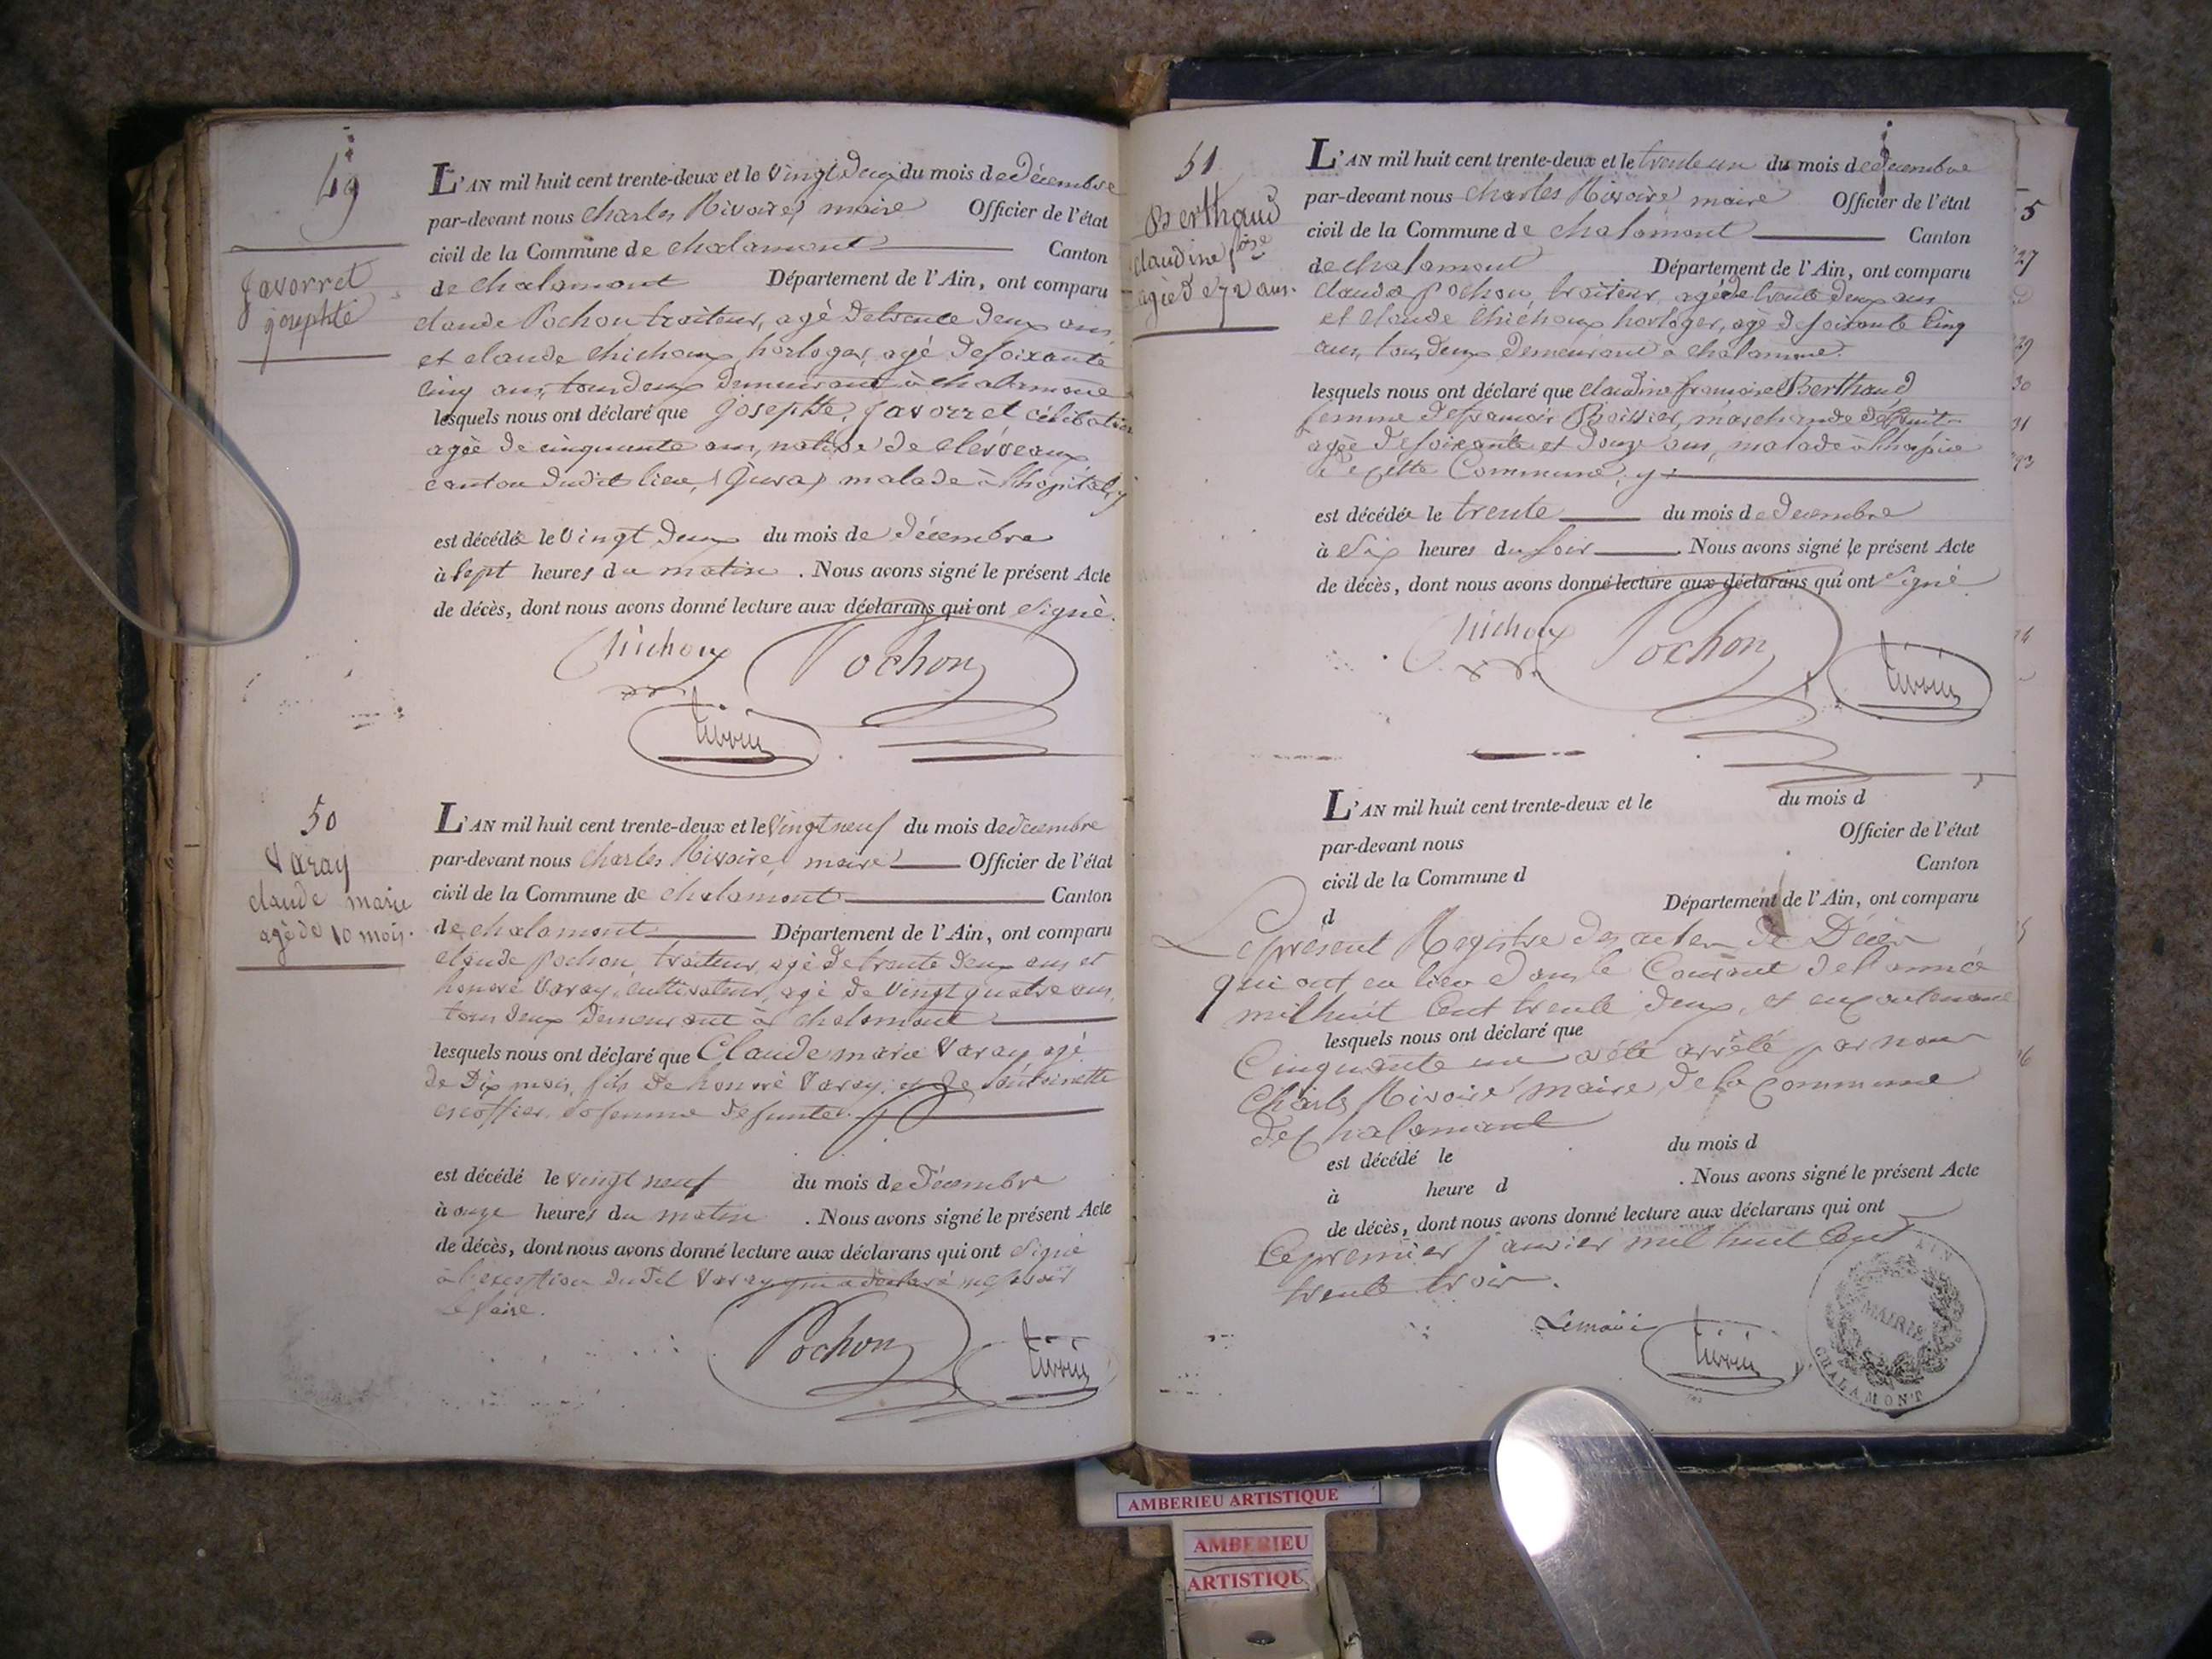 49
Javorret
josephte
L'AN mil huit cent trente-deux et le vingt deux du mois de Décembre
par-devant nous Charles Rivoire, maire Officier de l'état
civil de la Commune de chalamont Canton
de chalamont Département de l'Ain, ont comparu
claude Pochon traiteur, agé de trente deux ans
et claude Chichoux, horloger, agé de soixante
cinq ans, tous deux demeurant à chalamont
lesquels nous ont déclaré que josephte, Javorret célibataire
agée de cinquante ans, native de clerveaux
canton dudit lieu, (jura) malade à l'hopital, y
est décédée le vingt deux du mois de décembre
à sept heures du matin . Nous avons signé le présent Acte
de décès, dont nous avons donné lecture aux déclarans qui ont signé.
Chichoux Pochon
50
Varay
claude marie
agé de 10 mois.
L'AN mil huit cent trente-deux et le vingt neuf du mois de decembre
par-devant nous Charles Rivoire, maire Officier de l'état
civil de la Commune de chalamont Canton
de chalamont Département de l'Ain, ont comparu
claude pochon, traiteur, agé de trente deux ans et
honoré Varay, cultivateur, agé de vingt quatre ans,
tous deux demeurant à chalamont
lesquels nous ont déclaré que Claude marie Varay agé
de Dix mois, fils de honoré Varay, et de antoinette
escoffier, sa femme defunte.
est décédé le vingt neuf du mois de Décembre
à onze heures du matin . Nous avons signé le présent Acte
de décès, dont nous avons donné lecture aux déclarans qui ont signé
à l'exception dudit Varay qui a déclaré ne savoir
le faire.
Pochon
51
Berthaud
claudine fçoise
agée de 72 ans.
L'AN mil huit cent trente-deux et le trente un du mois de decembre
par-devant nous Charles Rivoire maire Officier de l'état
civil de la Commune de chalamont Canton
de chalamont Département de l'Ain, ont comparu
claude pochon, traiteur, agé de trente deux ans
et Claude Chichoux horloger, agé de soixante cinq
ans, tous deux demeurant à chalamont.
lesquels nous ont déclaré que claudine françoise Berthaud
femme de françois Boissier, marchande de fruit
agée de soixante et douze ans, malade à l'hospice
de cette Commune, y
est décédée le trente du mois de decembre
à six heures du soir . Nous avons signé le présent Acte
de décès, dont nous avons donné lecture aux déclarans qui ont signé.
Chichoux Pochon
L'AN mil huit cent trente-deux et le du mois d
par-devant nous Officier de l'état
civil de la Commune d Canton
d Département de l'Ain, ont comparu
Le présent Registre des actes de Décès
qui ont eu lieu dans le Courant de l'année
mil huit Cent trente deux, et en contenant
lesquels nous ont déclaré que
Cinquante un a été arrêté par nous
Charles Rivoire maire de la commune
de Chalamont
est décédé le du mois d
à heure d . Nous avons signé le présent Acte
de décès, dont nous avons donné lecture aux déclarans qui ont
Ce premier janvier mil huit Cent
trente trois.
Le maire
AIN
MAIRIE
CHALAMONT
5
27
29
30
31
AMBERIEU ARTISTIQUE
AMBERIEU
ARTISTIQU